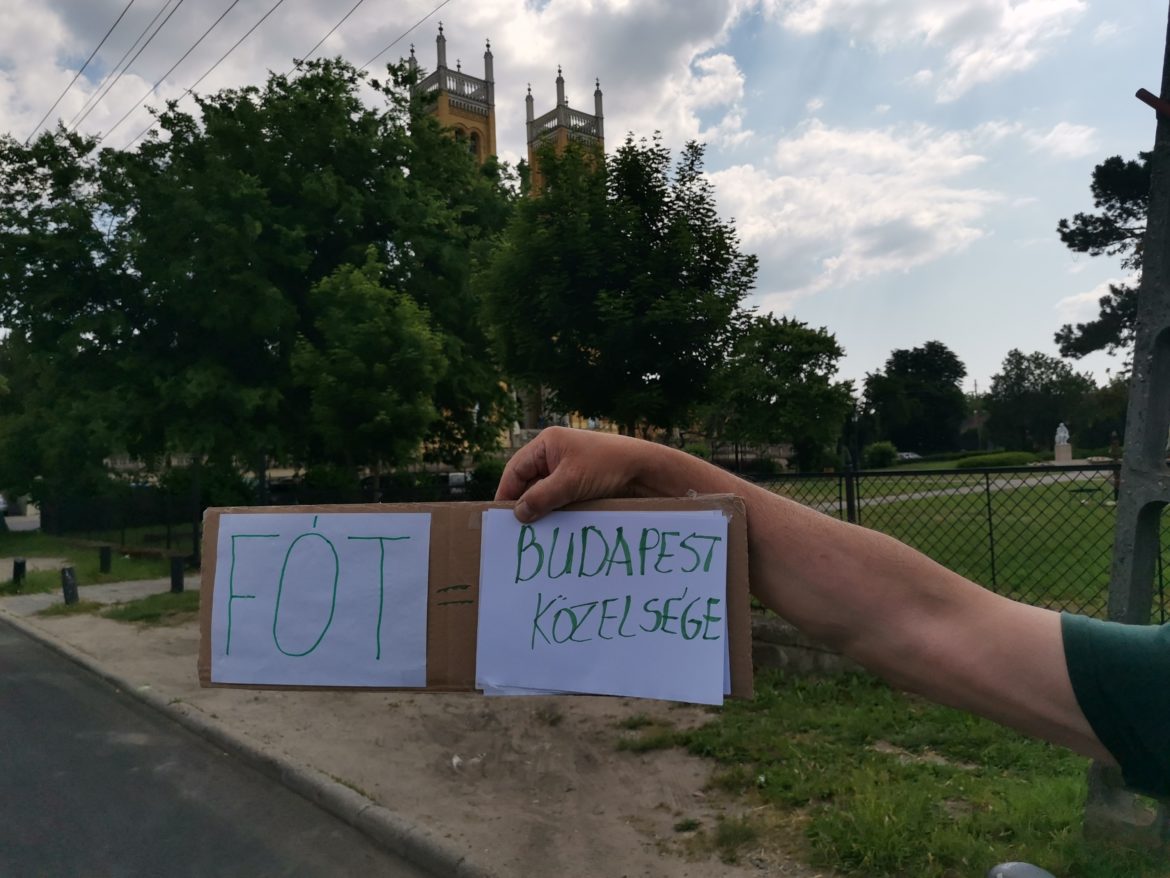 FÓT
=
BUDAPEST
KÖZELSÉGE